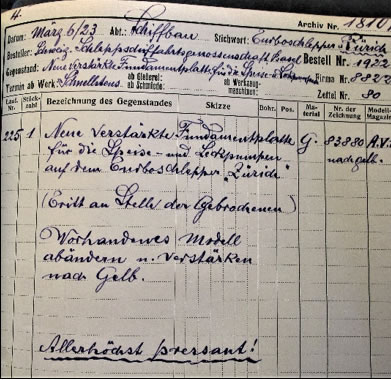 4.
Archiv Nr. 1810
Datum: März 6/23 Abt.: Schiffbau Stichwort: Turboschlepper „Zürich"
Besteller: Schweiz. Schleppschiffahrtsgenossenschaft Basel Bestell Nr. 1922
Gegenstand: Neue verstärkte Fundamentplatte für die Speise- Firma Nr. 8022
Termin ab Werk: Schnellstens ab Gießerei: ab Schmiede: ab Werkzeug-maschinen: Zettel Nr. 80
Lauf. Nr. Stück-zahl Bezeichnung des Gegenstandes Skizze Bohr. Pos. Ma-terial Nr. der Zeichnung Modell-Magazin
225 1 Neue verstärkte Fundamentplatte G. 83880 A.V.
für die Speise- und Leckpumpen nach gelb.
auf dem Turboschlepper „Zürich"
(Tritt an Stelle der Gebrochenen)
Vorhandenes Modell
abändern u. verstärken
nach Gelb.
Allerhöchst pressant!